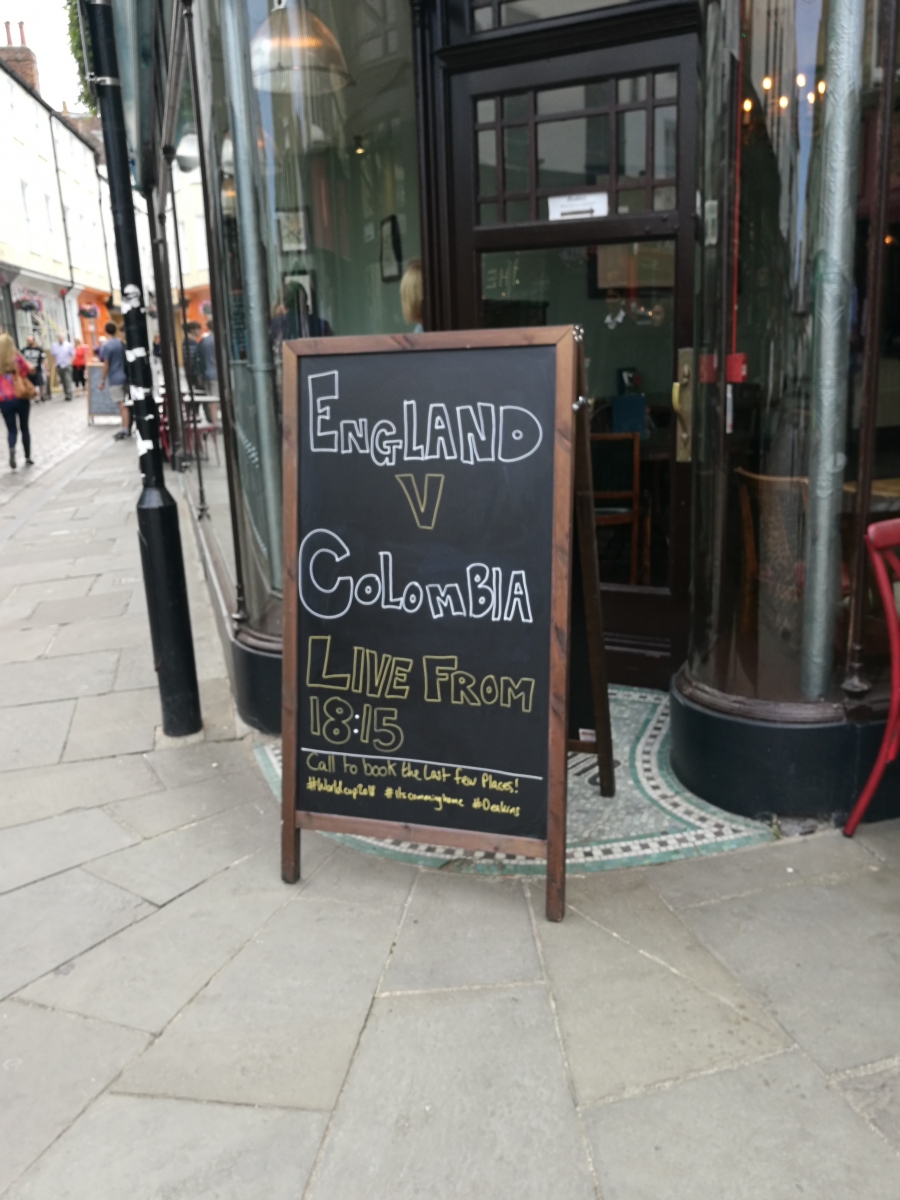 ENGLAND
V
COLOMBIA
LIVE FROM
18:15
Call to book the Last few Places!
#Worldcup2018 #itscomminghome #Deakins